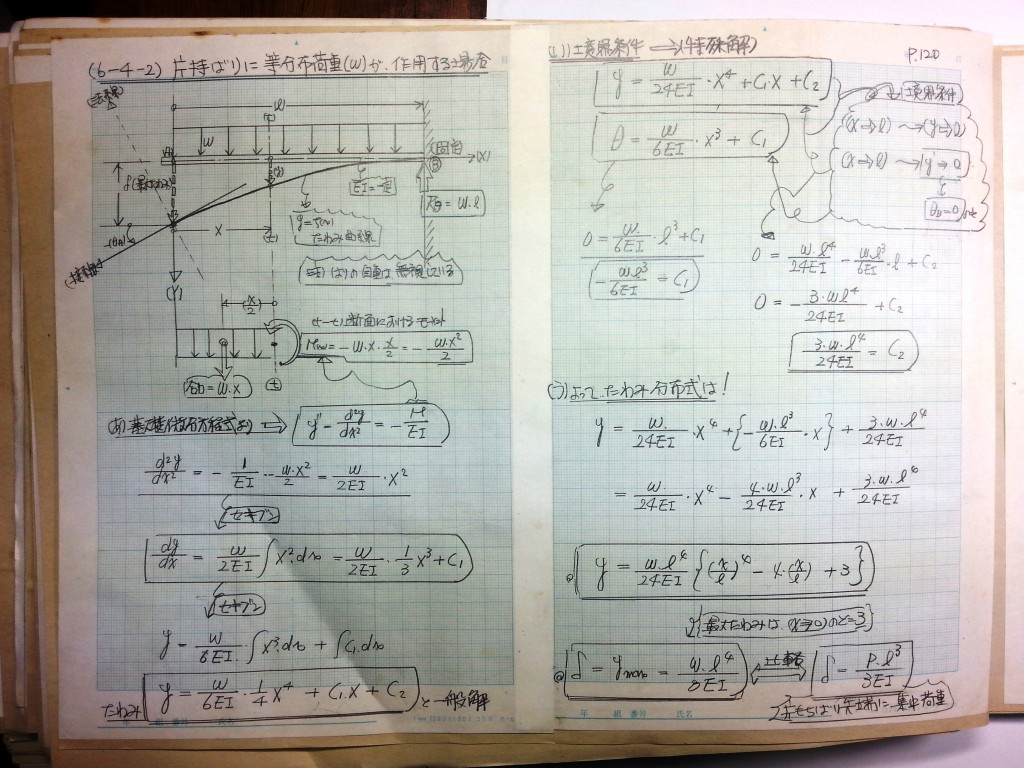 (6-4-2) 片持ばりに等分布荷重(W)が、作用する場合
l
W
(X)
固定
B
EI=一定
RB = W·l
y=f(x)
たわみ曲線
X
(Y)
注) はりの自重は無視している
(x/2)
(t-t)断面におけるモーメント
M(x) = -W·X·x/2 = -W·X²/2
= W·X
(t)
基礎微分方程式より ⇒ y'' = d²y/dx² = -M/EI
d²y/dx² = -1/EI · -W·X²/2 = W/2EI · X²
セキブン
dy/dx = W/2EI ∫X²·dx = W/2EI · 1/3 X³ + C₁
セキブン
y = W/6EI · ∫X³·dx + ∫C₁·dx
たわみ y = W/6EI · 1/4 X⁴ + C₁X + C₂ と一般解
P.120
(い) 境界条件 ⇒ (特殊解)
y = W/24EI · X⁴ + C₁X + C₂
θ = W/6EI · X³ + C₁
境界条件
(X⇒l) 〜→ (y⇒0)
(X⇒l) 〜→ y'⇒0
θB=0
0 = W/6EI · l³ + C₁
-W·l³/6EI = C₁
0 = W·l⁴/24EI - W·l³/6EI · l + C₂
0 = -3·W·l⁴/24EI + C₂
3·W·l⁴/24EI = C₂
(う) よって、たわみ分布式は!
y = W/24EI · X⁴ + {-W·l³/6EI · X} + 3·W·l⁴/24EI
= W/24EI · X⁴ - 4·W·l³/24EI · X + 3·W·l⁴/24EI
y = W·l⁴/24EI {(x/l)⁴ - 4·(x/l) + 3}
{最大たわみは、(X⇒0)のとき=3}
δ = ymax = W·l⁴/8EI ⟷ 比較 δ = P·l³/3EI
片もちばり先端に、集中荷重
年 組 番号 氏名